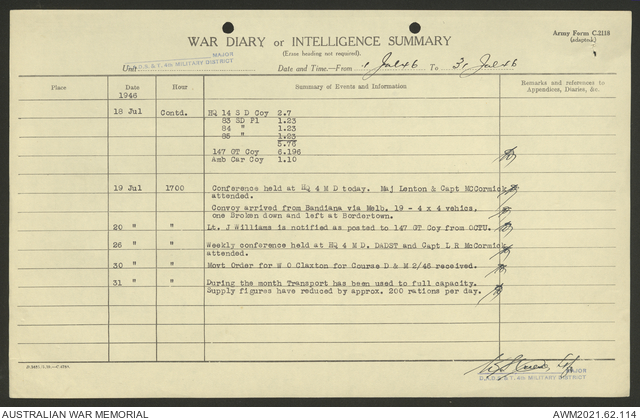 Army Form C.2118
(adapted.)
WAR DIARY or INTELLIGENCE SUMMARY
(Erase heading not required).
MAJOR
Unit D.A.D.S.&T. 4th MILITARY DISTRICT
Date and Time.—From 1 Jul 46 To 31 Jul 46
Place Date Hour Summary of Events and Information Remarks and references to Appendices, Diaries, &c.
1946
18 Jul Contd. HQ 14 S D Coy 2.7
83 SD Pl 1.23
84 " 1.23
85 " 1.23
5.76
147 GT Coy 6.196
Amb Car Coy 1.10
19 Jul 1700 Conference held at HQ 4 M D today. Maj Lenton & Capt MCCormick
attended.
Convoy arrived from Bandiana via Melb. 19 - 4 x 4 vehics.
one Broken down and left at Bordertown.
20 " " Lt. J Williams is notified as posted to 147 GT Coy from OCTU.
26 " " Weekly conference held at HQ 4 M D. DADST and Capt L R McCormick
attended.
30 " " Movt Order for W O Claxton for Course D & M 2/46 received.
31 " " During the month Transport has been used to full capacity.
Supply figures have reduced by approx. 200 rations per day.
MAJOR
D.A.D.S.&T. 4th MILITARY DISTRICT
AUSTRALIAN WAR MEMORIAL
AWM2021.62.114